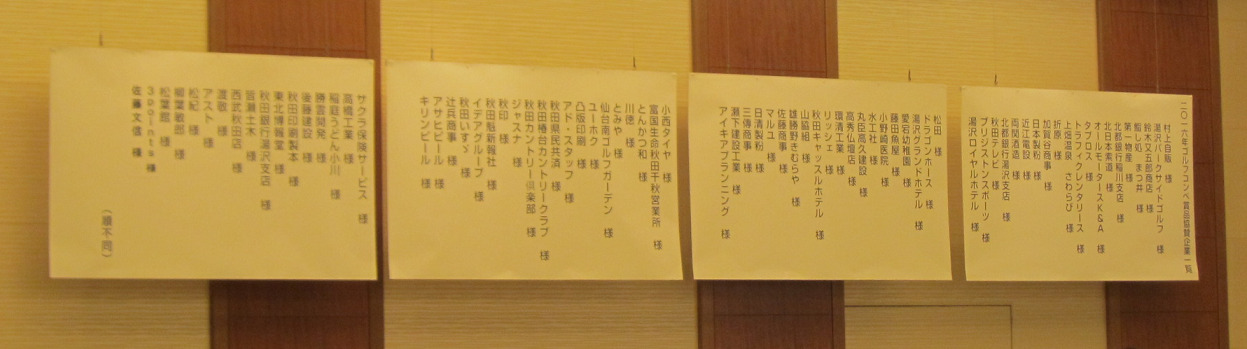 二〇一六年ゴルフコンペ賞品協賛企業一覧
村上自販 様
湯沢パークサイドゴルフ 様
鈴木又五郎商店 様
鮨し処 まつ井 様
第一物産 様
北都銀行稲川支店 様
北日本東道 様
オールモータースK&A 様
トラフィックレンタリース 様
タフロス 様
折原 様
上畑温泉 さわらび 様
加賀谷商事 様
日本製粉 様
近江電設 様
両関酒造 様
北都銀行湯沢支店 様
ブリヂストンスポーツ 様
湯沢ロイヤルホテル 様
松田 様
ドラゴンホース 様
湯沢グランドホテル 様
愛宕幼稚園 様
藤田魚屋 様
小野崎医院 様
水工社 様
丸臣高久建設 様
高秀仏壇店 様
環清工業 様
リッツ 様
秋田テレビ 様
秋田キャッスルホテル 様
山脇組 様
雄勝野きむらや 様
佐藤商事 様
マルユ 様
日清製粉 様
三傳商事 様
瀬下建設工業 様
アイキアプランニング 様
小西タイヤ 様
富国生命秋田千秋営業所 様
とんかつ和 様
川徳 様
とみや 様
仙台南ゴルフガーデン 様
ユーホク 様
凸版印刷 様
アド・スタッフ 様
秋田県民共済 様
秋田椿台カントリークラブ 様
秋田カントリー倶楽部 様
ジャスナ 様
秋印 様
秋田魁新報社 様
イデアグループ 様
秋田いすゞ 様
辻兵商事 様
アサヒビール 様
キリンビール 様
サクラ保険サービス 様
高橋工業 様
稲庭うどん小川 様
勝雲開発 様
後藤建設 様
秋田印刷製本 様
東北博報堂 様
秋田銀行湯沢支店 様
皆瀬土木 様
西武秋田店 様
渡敬 様
アスト 様
松紀 様
柳葉敏郎 様
松葉館 様
3points 様
佐藤文信 様
(順不同)